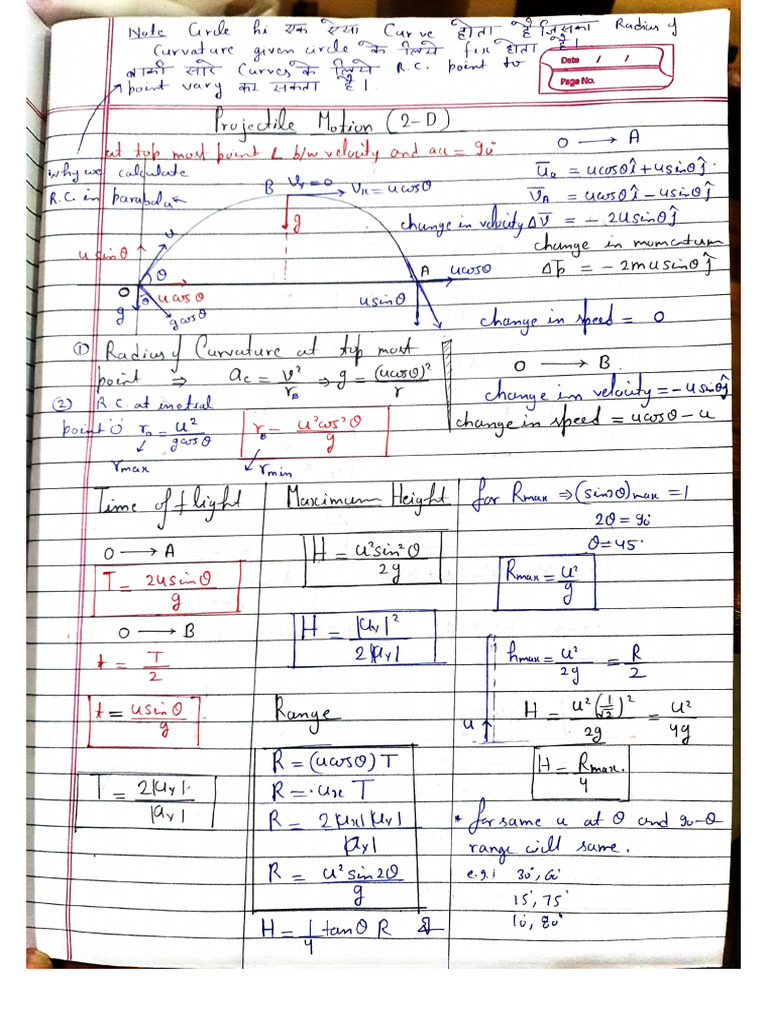 Note Circle hi एक ऐसा Curve होता है जिसका Radius of
Curvature given circle के लिये fix होता है।
बाकी सारे Curves के लिये R.C. point to
point vary कर सकता है।
Date / /
Page No.
Projectile Motion (2-D)
at top most point ∠ b/w velocity and acc = 90°
why we calculate
R.C. in parabola
B Vy=0 Vx = ucosθ
g
u
usinθ
θ
O ucosθ
g θ gcosθ
A ucosθ
usinθ
O → A
u̅o = ucosθî + usinθĵ
v̅A = ucosθî - usinθĵ
change in velocity Δv̅ = - 2usinθĵ
change in momentum
Δp̅ = -2musinθĵ
change in speed = 0
① Radius of Curvature at top most
point ⇒ ac = v²/rB ⇒ g = (ucosθ)²/r
② R.C. at inetral
point O ro = u²/gcosθ
rmax
rB = u²cos²θ/g
rmin
O → B
change in velocity = -usinθĵ
change in speed = ucosθ - u
Time of flight
O → A
T = 2usinθ/g
O → B
t = T/2
t = usinθ/g
T = 2|uy|/|ay|
Maximum Height
H = u²sin²θ/2g
H = |uy|²/2|ay|
Range
R = (ucosθ)T
R = ux T
R = 2|ux||uy|/|ay|
R = u²sin2θ/g
H = 1/4 tanθ R
for Rmax ⇒ (sin2θ)max = 1
2θ = 90°
θ = 45°
Rmax = u²/g
u
hmax = u²/2g = R/2
H = u²(1/√2)²/2g = u²/4g
H = Rmax/4
* for same u at θ and 90-θ
range will same.
e.g. 30°, 60°
15°, 75°
10°, 80°